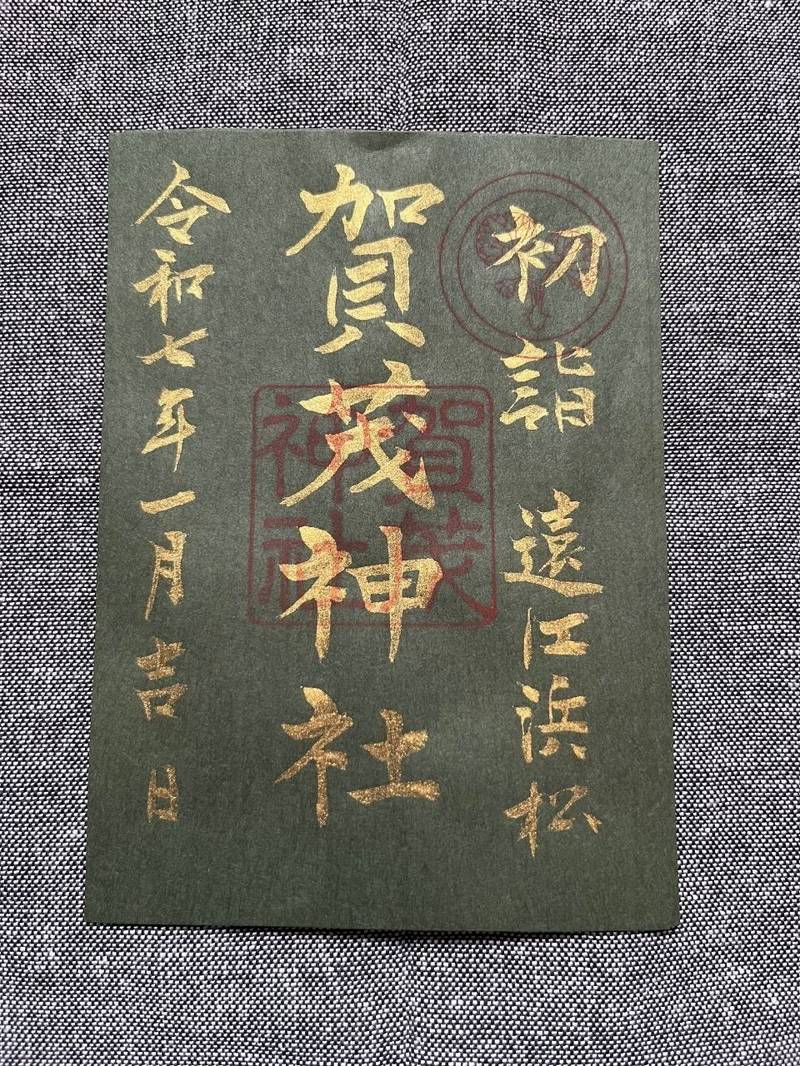 初詣 遠江浜松
賀茂神社
令和七年一月吉日
賀茂
神社